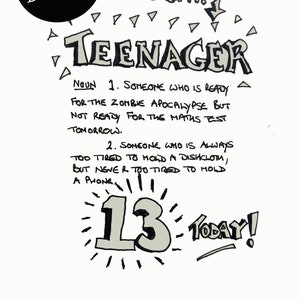 TEENAGER
NOUN 1. SOMEONE WHO IS READY
FOR THE ZOMBIE APOCALYPSE BUT
NOT READY FOR THE MATHS TEST
TOMORROW.
2. SOMEONE WHO IS ALWAYS
TOO TIRED TO HOLD A DISHCLOTH,
BUT NEVER TOO TIRED TO HOLD
A PHONE.
13 TODAY!